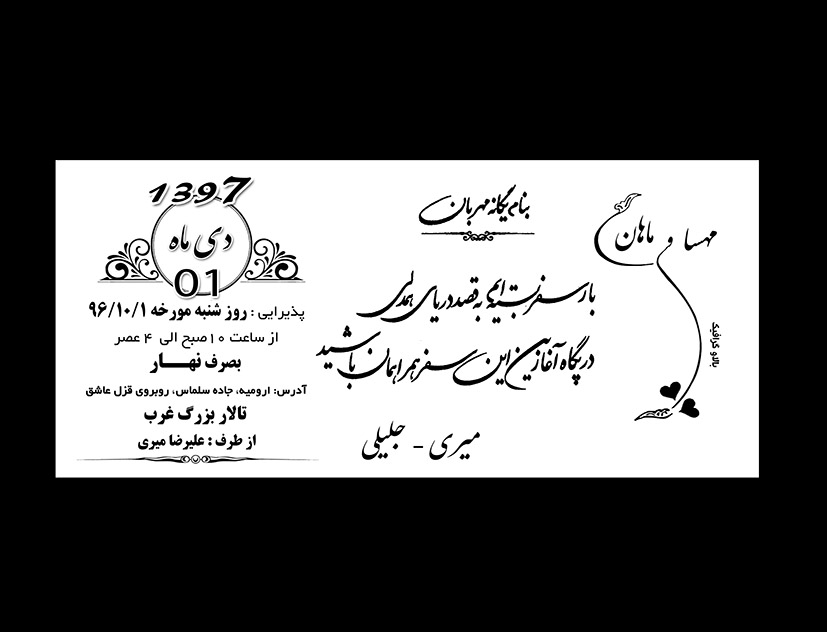 مهسا و ماهان
بالو گرافیک
بنام یگانه مهربان
بار سفر بسته ایم به قصد دریای همدلی
در پگاه آغازین این سفر همراهمان باشید
میری - جلیلی
1397
دی ماه
01
پذیرایی : روز شنبه مورخه ۹۶/۱۰/۱
از ساعت ۱۰ صبح الی ۴ عصر
بصرف نهــار
آدرس: ارومیه، جاده سلماس، روبروی قزل عاشق
تالار بزرگ غرب
از طرف : علیرضا میری